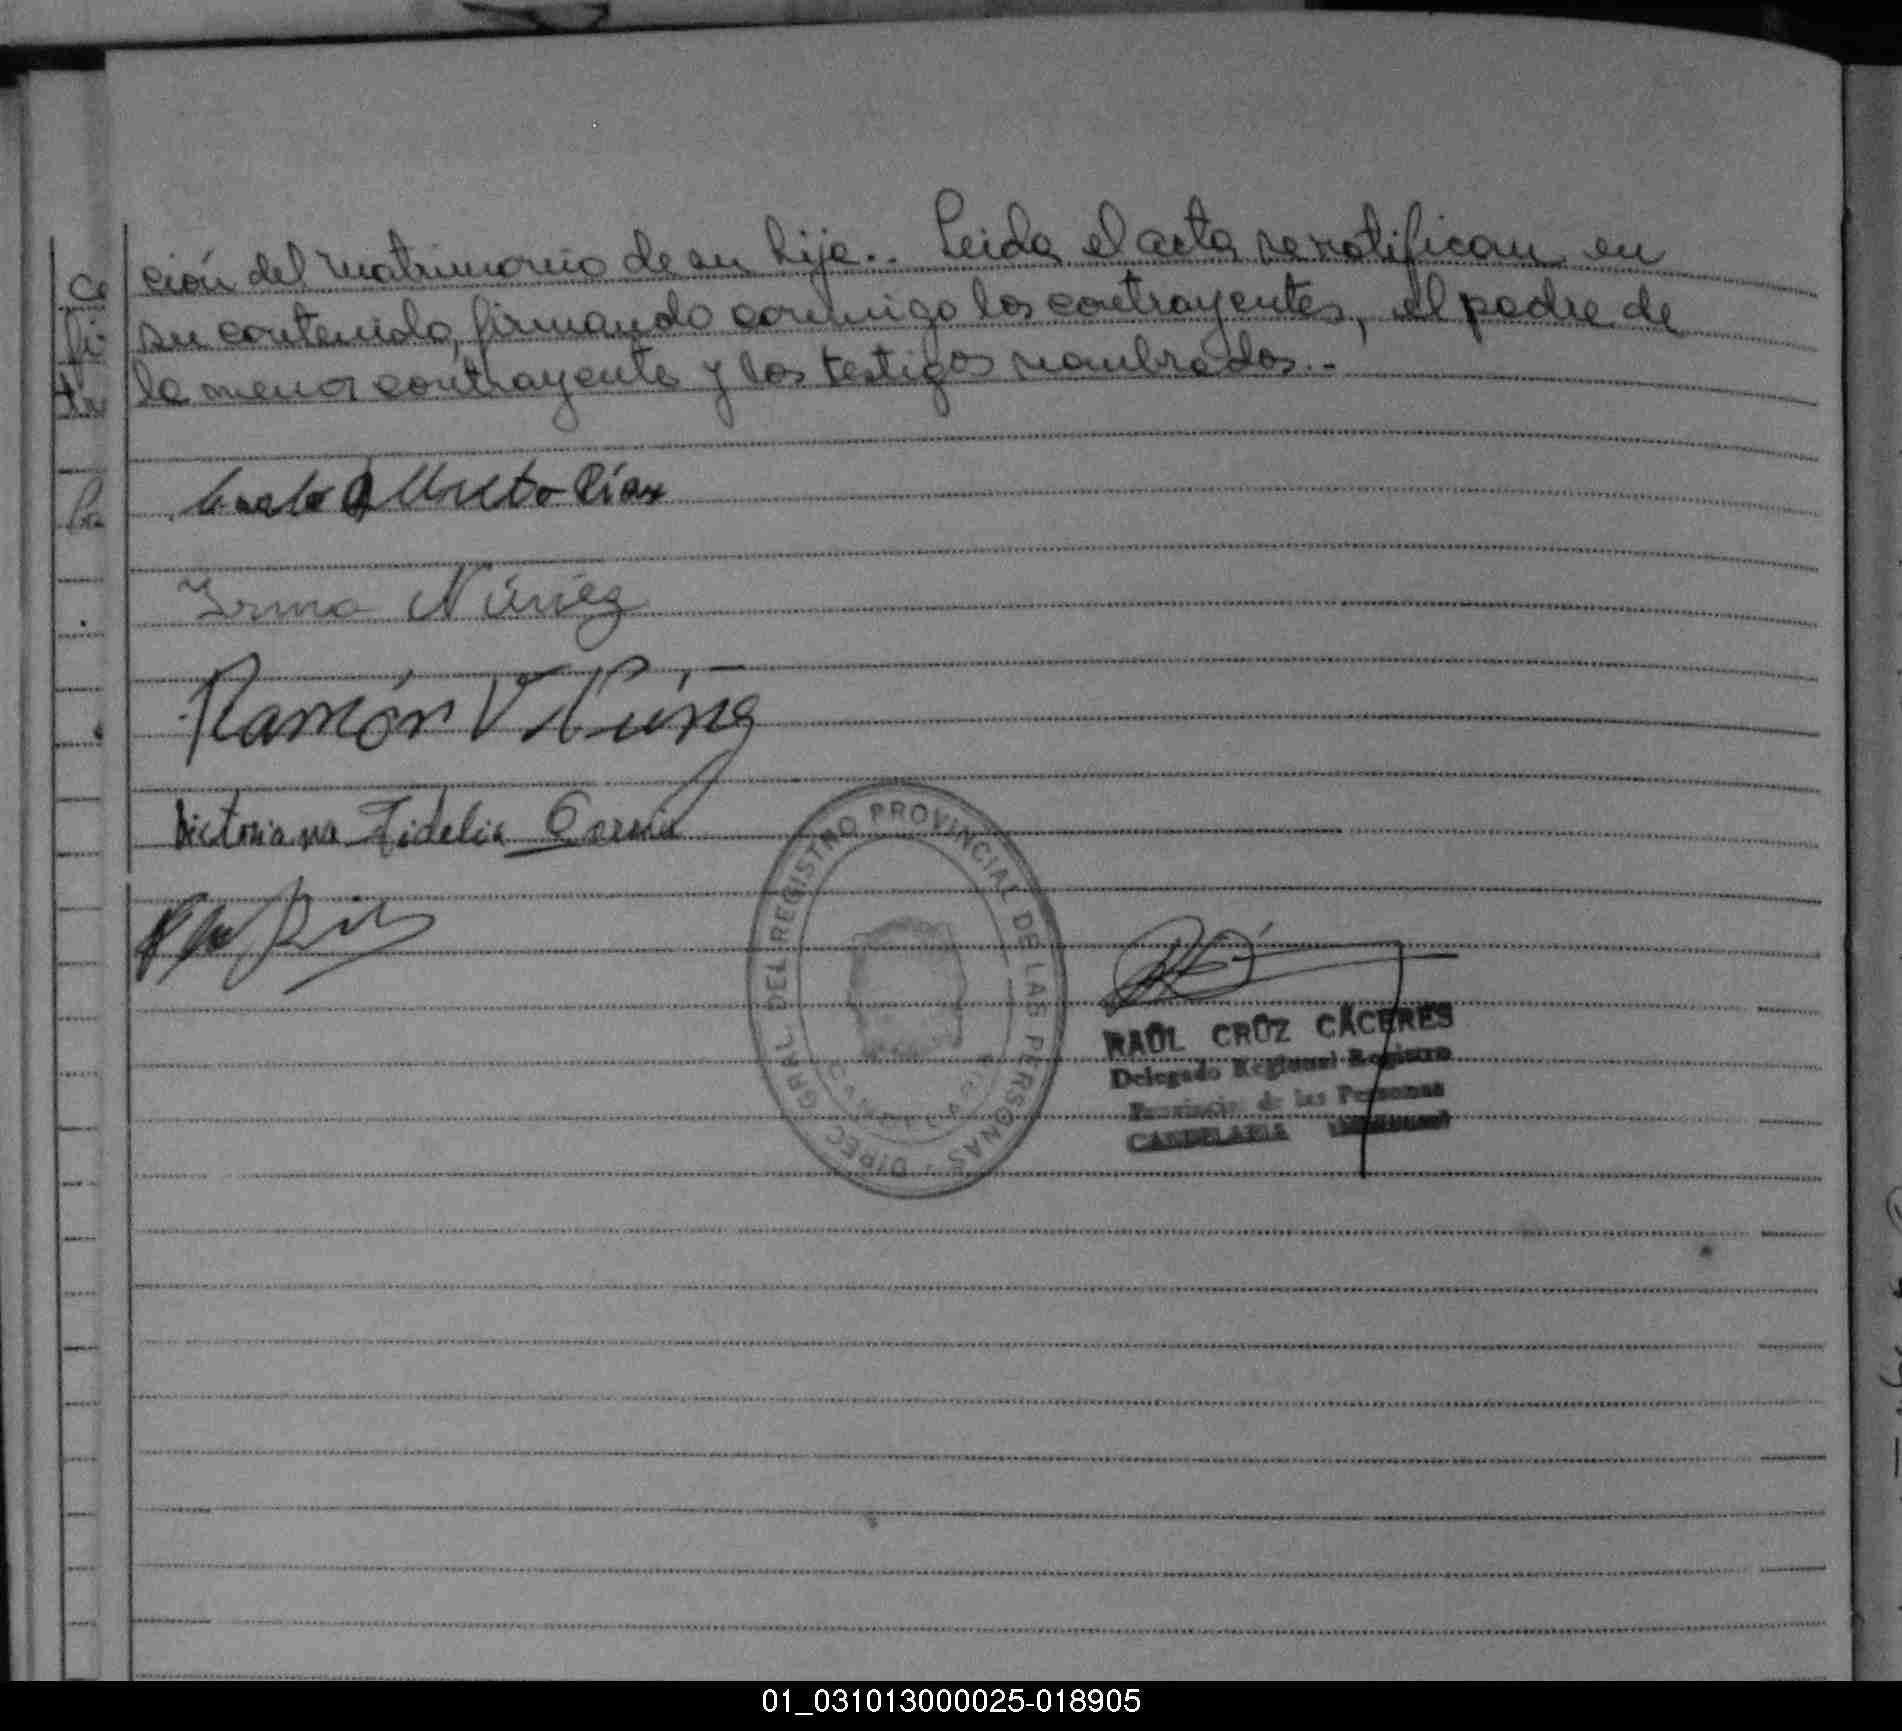 ción del matrimonio de su hija.. Leida el acta se ratifican en
su contenido, firmando conmigo los contrayentes, el padre de
la menor contrayente y los testigos nombrados..
Alberto Díaz
Irma Núñez
Ramón V Núñez
Victoriana Fidelia
DIREC GRAL DEL REGISTRO PROVINCIAL DE LAS PERSONAS
CANDELARIA
RAÚL CRÚZ CÁCERES
Delegado Regional Registro
Provincial de las Personas
CANDELARIA
01_031013000025-018905